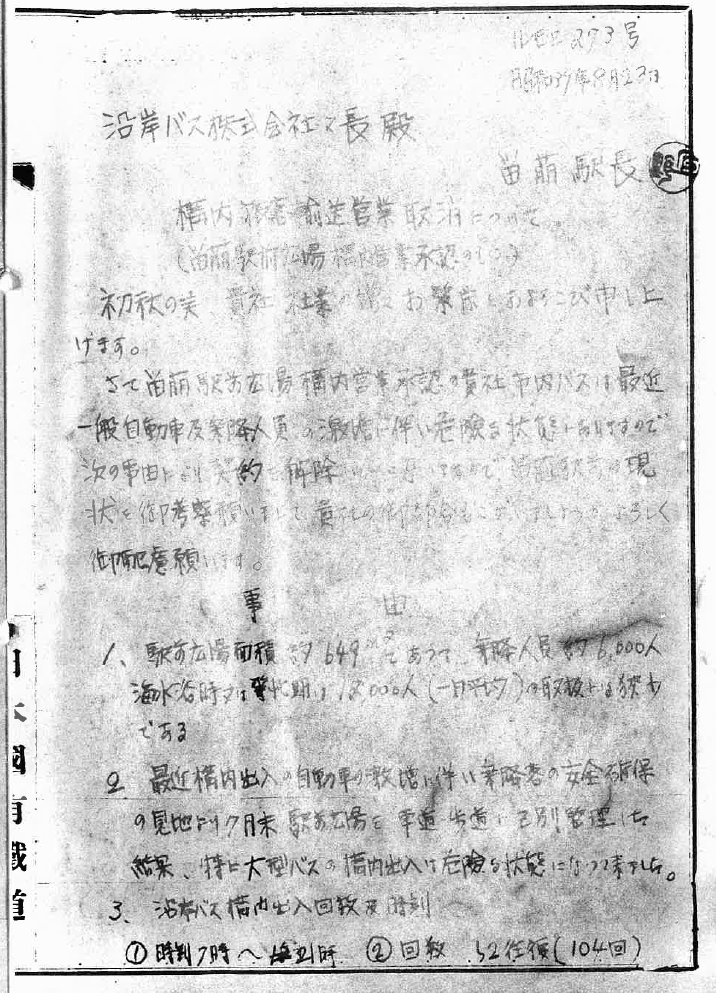 273号
昭和37年8月23日
沿岸バス株式会社々長殿
留萌駅長
構内旅客輸送営業取消について
(留萌駅前広場構内営業承認のもの)
初秋の 貴社 社業の お繁栄をおよろこび申し上
げます。
さて留萌駅前広場構内営業承認の貴社市内バスは最近
一般自動車及乗降人員の激増に伴い危険な状態にありますので
次の事由により契約を解除 ので 留萌駅前の現
状を御考察願いまして貴社の御都合もございましょうが よろしく
御配意願います。
事 由
1、駅前広場面積約649m²であって、乗降人員約6,000人
海水浴時又は繁忙期は 000人(一日平均)の取扱 狭
である
2 最近構内出入の自動車の激増に伴い乗降客の安全確保
の見地より7月末 駅前広場を車道 歩道に区別管理した
結果、特に大型バスの構内出入は危険な状態になって来ました。
3、沿岸バス構内出入回数及時刻
①時刻7時〜 21時 ②回数 52往復(104回)
日本國有鐵道